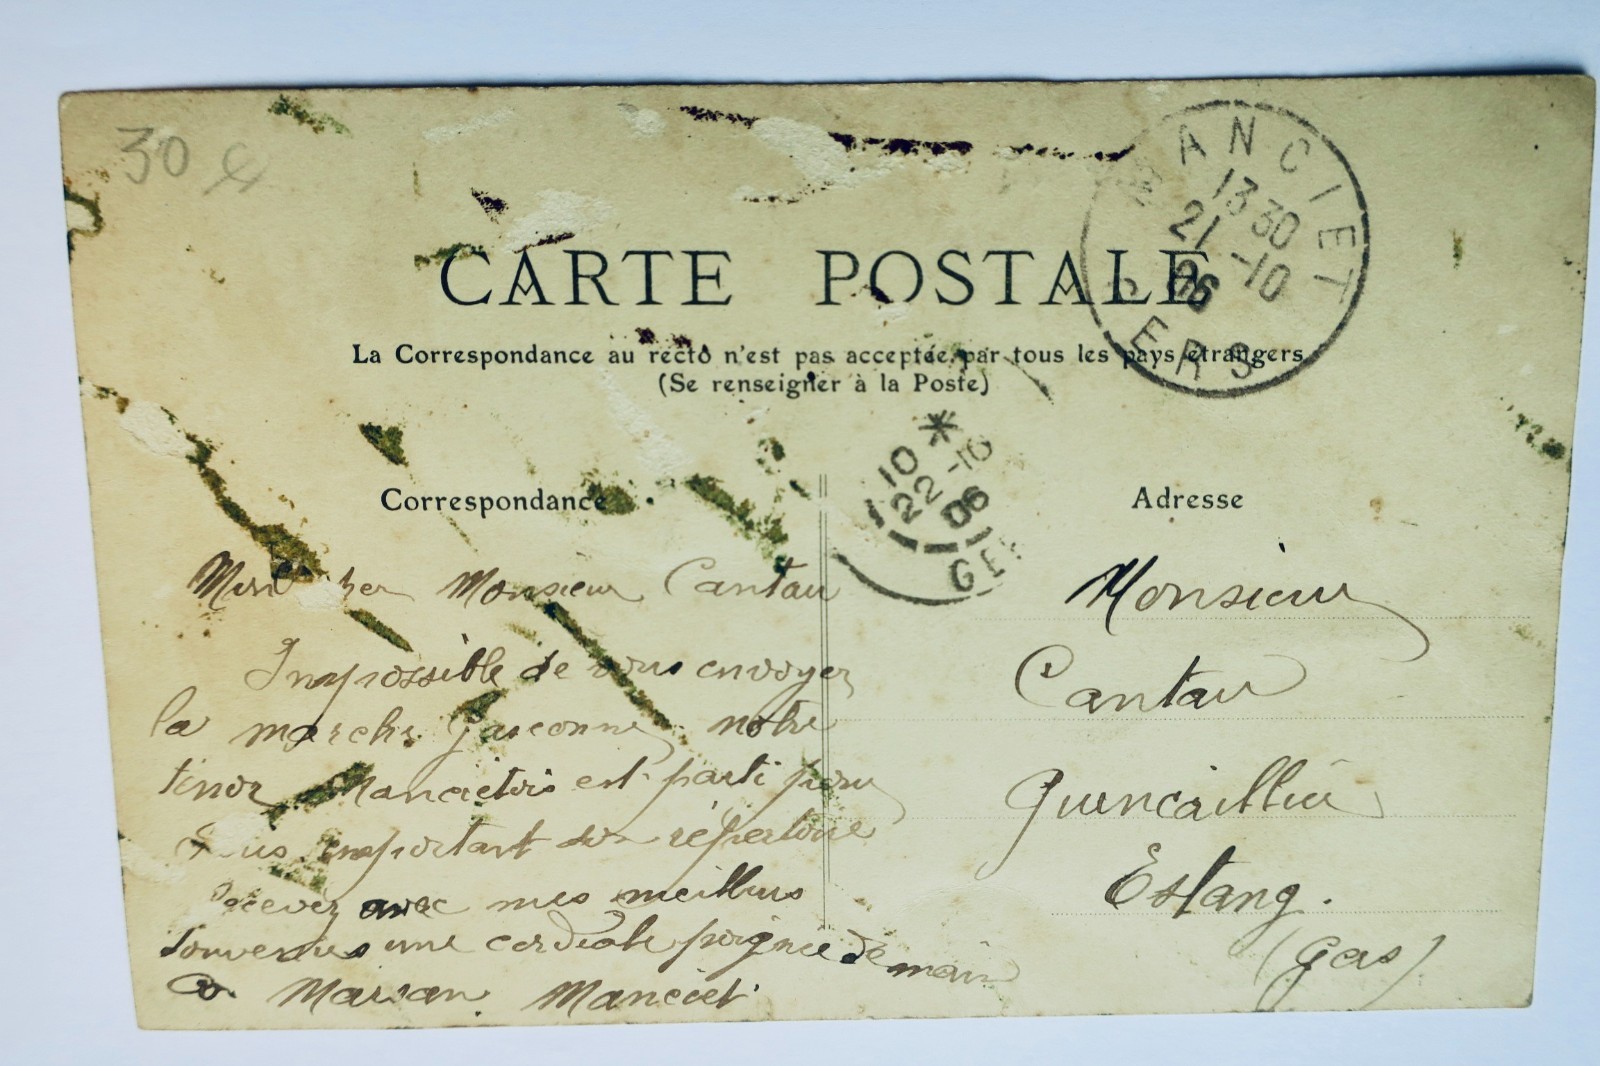 30
MANCIET
13 30
21 -10
06
GERS
CARTE POSTALE
La Correspondance au recto n'est pas acceptée par tous les pays étrangers
(Se renseigner à la Poste)
*
10
22 -10
06
GE
Correspondance
Mon cher Monsieur Cantau
Impossible de vous envoyer
la marche Gasconne, notre
tenor Manciétois est parti pour
emportant son répertoire
Recevez avec mes meilleurs
souvenirs une cordiale poignée de main
Marsan Manciet
Adresse
Monsieur
Cantau
Quincaillier
Estang.
(Gers)